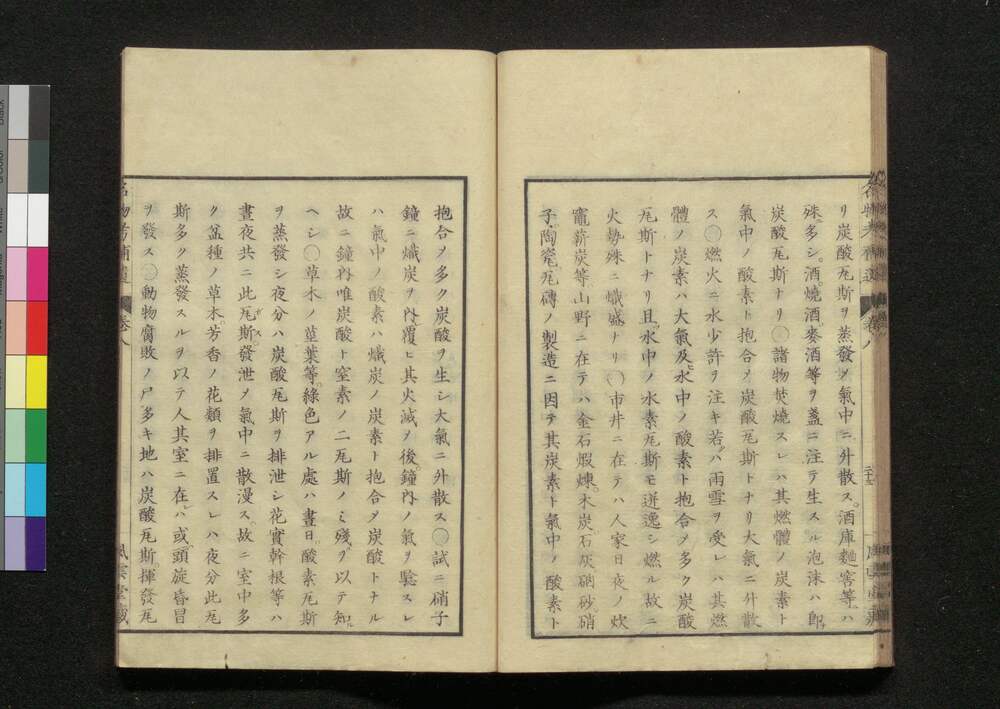 リ炭酸瓦斯ヲ蒸發メ氣中ニ外散ス酒庫麯窖等ハ
殊多シ酒燒酒麥酒等ヲ盞ニ注テ生スル泡沫ハ郎
炭酸瓦斯ナリ〇諸物焚燒スレハ其燃體ノ炭素ト
氣中ノ酸素ト抱合メ炭酸瓦斯トナリ大氣ニ外散
ス〇燃火ニ水少許ヲ注キ若ハ雨雪ヲ受レハ其燃
體ノ炭素ハ大氣及水中ノ酸素ト抱合メ多ク炭酸
瓦斯トナリ且水中ノ水素瓦斯モ迸逸シ燃ル故ニ
火勢殊ニ熾盛ナリ〇市井ニ在テハ人家日夜ノ炊
竈薪炭等山野ニ在テハ金石煆煉木炭石灰硇砂硝
子陶窀瓦磚ノ製造ニ因テ其炭素ト氣中ノ酸素ト
抱合メ多ク炭酸ヲ生シ大氣ニ外散ス〇試ニ硝子
鐘ニ熾炭ヲ內覆ヒ其火滅メ後鐘內ノ氣ヲ驗スレ
ハ氣中ノ酸素ハ熾炭ノ炭素ト抱合メ炭酸トナル
故ニ鐘內唯炭酸ト窒素ノ二瓦斯ノミ殘ヲ以テ知
ヘシ〇草木ノ莖葉等綠色アル處ハ晝日酸素瓦斯
ヲ蒸發シ夜分ハ炭酸瓦斯ヲ排泄シ花實幹根等ハ
晝夜共ニ此瓦斯發泄メ氣中ニ散漫ス故ニ室中多
ク盆種ノ草木芳香ノ花類ヲ排置スレハ夜分此瓦
斯多ク蒸發スルヲ以テ人其室ニ在ハ或頭旋昏冒
ヲ發ス〇動物腐敗ノ尸多キ地ハ炭酸瓦斯揮發瓦
名物考補遺 卷八 風雲堂藏